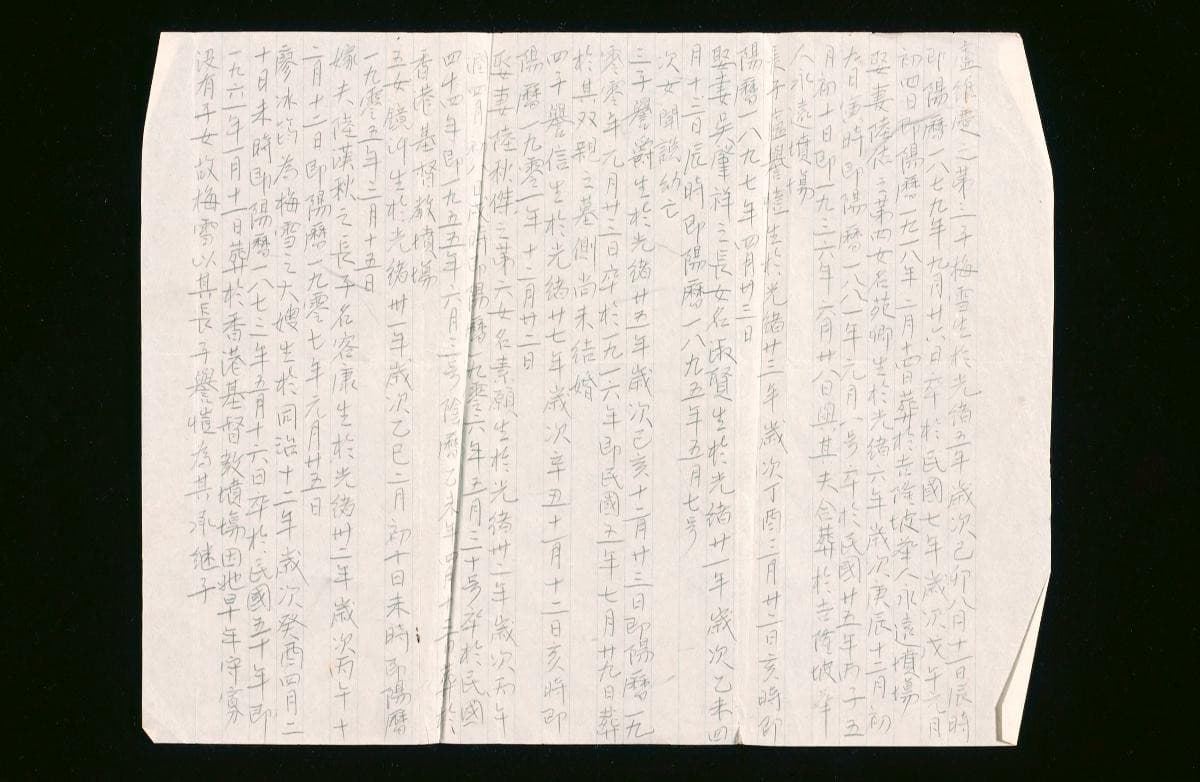 盧維慶之第二子梅雪生於光緒五年歲次己卯八月十一日辰時
即陽曆一八七九年九月廿六日卒於民國七年歲次戊午元月
初四日即陽曆一九一八年二月十四日葬於吉隆坡華人永遠墳場
娶妻陸宏之第四女名苑卿生於光緒六年歲次庚辰十二月初
九日寅時即陽曆一八八一年元月八号卒於民國廿五年丙子五
月初十日即一九三六年六月廿八日與其夫合葬於吉隆坡華
人永遠墳場
長子盧譽愷生於光緒廿三年歲次丁酉三月廿二日亥時即
陽曆一八九七年四月廿三日
娶妻吳肇祥之長女名淑賢生於光緒廿一年歲次乙未四
月十三日辰時即陽曆一八九五年五月七号
次女閏談幼亡
三子譽爵生於光緒廿五年歲次己亥十二月廿三日即陽曆一九
零零年元月廿三日卒於一九一六年即民國五年七月廿九日葬
於其双親之墓側尚未結婚
四子譽信生於光緒廿七年歲次辛丑十一月十二日亥時即
陽曆一九零一年十二月廿二日
娶妻陸秋傑之第六女名素願生於光緒卅二年歲次丙午
閏四月戌時即陽曆一九零六年五月三十号卒於民國
四十四年即一九五五年六月三号陰曆乙未年四月十三日葬於
香港基督教墳場
五女鏡冰生於光緒卅一年歲次乙巳二月初十日未時即陽曆
一九零五年三月十五日
嫁夫陸漢秋之長子名容康生於光緒卅二年歲次丙午十
二月十二日即陽曆一九零七年元月廿五日
廖冰筠為梅雪之大嫂生於同治十二年歲次癸酉四月二
十日未時即陽曆一八七三年五月十六日卒於民國五十年即
一九六一年一月十一日葬於香港基督教墳場因她早年守寡
没有子女故梅雪以其長子譽愷為其承继子